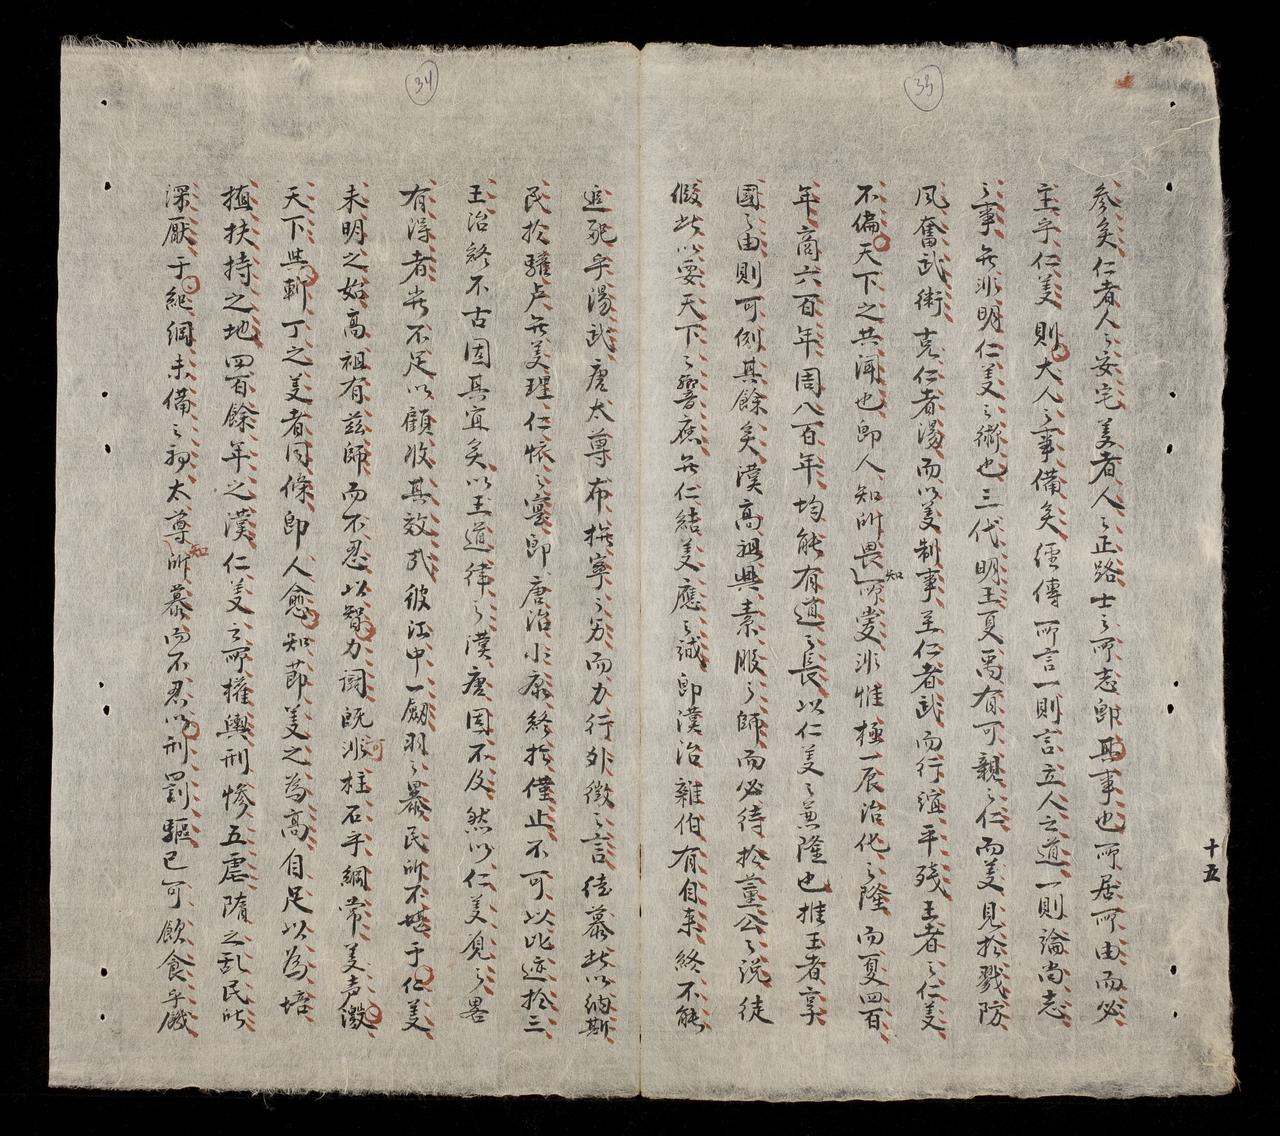 33
參矣仁者人之安宅美者人之正路士之所志即其事也所居所由而必
主乎仁美則大人之事備矣經傳所言一則言立人之道一則論尚志
之事無非明仁美之術也三代明王夏禹有可親之仁而美見於戮防
風奮武術克仁者湯而以美制事至仁者武而行誼平殘王者之仁美
不偏天下之共聞也即人知所畏知所愛非惟極一辰治化之隆而夏四百
年商六百年周八百年均能有道之長以仁美之兼隆也推王者享
國之由則可例其餘矣漢高祖興素服之師而必待於董公之說徒
假此以要天下之響應無仁結美應之誠即漢治雜伯有自来終不能
十五
34
追配乎湯武唐太尊布撫寧之勞而力行外徵之言徒慕此以納斯
民於驩虞無美理仁懷之實即唐治小康終於僅止不可以比迹於三
王治終不古固其宜矣以王道律之漢唐固不及然以仁美覓之畧
有得者豈不足以顧收其效哉彼江中一劒羽之暴民所不堪于仁美
未明之始高祖有茲師而不忍以智力鬪既非可柱石乎綱常美声激
天下與斬丁之美者同條即人愈知節美之為高自足以為培
植扶持之地四百餘年之漢仁美之所權輿刑慘五虐隋之乱民所
深厭于紀綱未備之初太尊知所慕而不忍以刑罰驅已可飲食乎饑